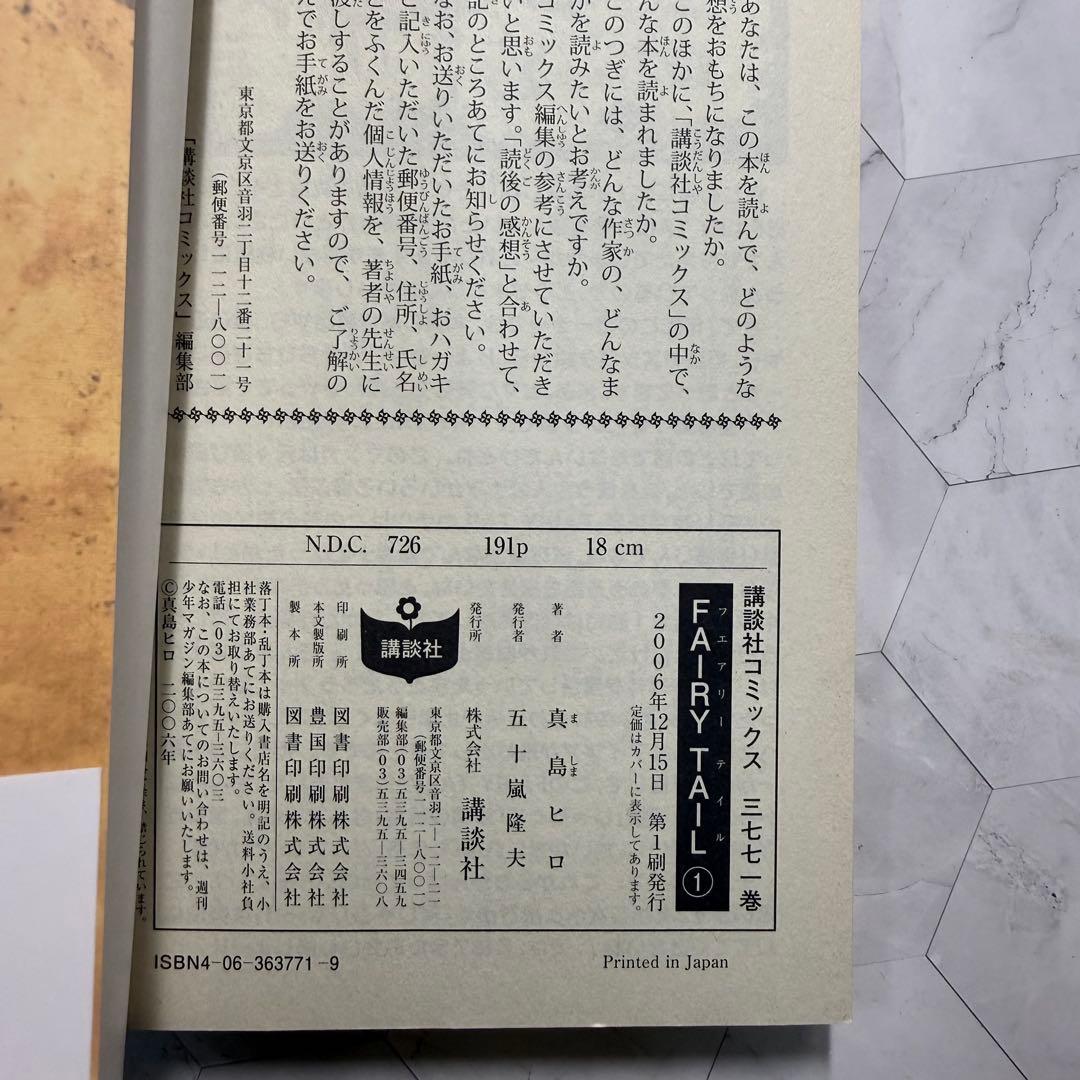 あなたは、この本を読んで、どのような
想をおもちになりましたか。
このほかに、「講談社コミックス」の中で、
んな本を読まれましたか。
このつぎには、どんな作家の、どんなま
がを読みたいとお考えですか。
コミックス編集の参考にさせていただき
いと思います。「読後の感想」と合わせて、
記のところあてにお知らせください。
なお、お送りいただいたお手紙、おハガキ
ご記入いただいた郵便番号、住所、氏名
どをふくんだ個人情報を、著者の先生に
渡しすることがありますので、ご了解の
んでお手紙をお送りください。
東京都文京区音羽二丁目十二番二十一号
(郵便番号一一二―八〇〇一)
「講談社コミックス」編集部
N.D.C. 726 191p 18 cm
講談社コミックス 三七七一巻
フェアリーテイル
FAIRY TAIL ①
2006年12月15日 第1刷発行
定価はカバーに表示してあります。
著者 真島ヒロ
ましま
発行者 五十嵐隆夫
発行所 株式会社 講談社
東京都文京区音羽二―一二―二一
(郵便番号一一二―八〇〇一)
編集部(03)五三九五―三四五九
販売部(03)五三九五―三六〇八
講談社
印刷所 図書印刷株式会社
本文製版所 豊国印刷株式会社
製本所 図書印刷株式会社
落丁本・乱丁本は購入書店名を明記のうえ、小
社業務部あてにお送りください。送料小社負
担にてお取り替えいたします。
電話(03)五三九五―三六〇三
なお、この本についてのお問い合わせは、週刊
少年マガジン編集部あてにお願いいたします。
©真島ヒロ 二〇〇六年
禁じられています。
ISBN4-06-363771-9
Printed in Japan